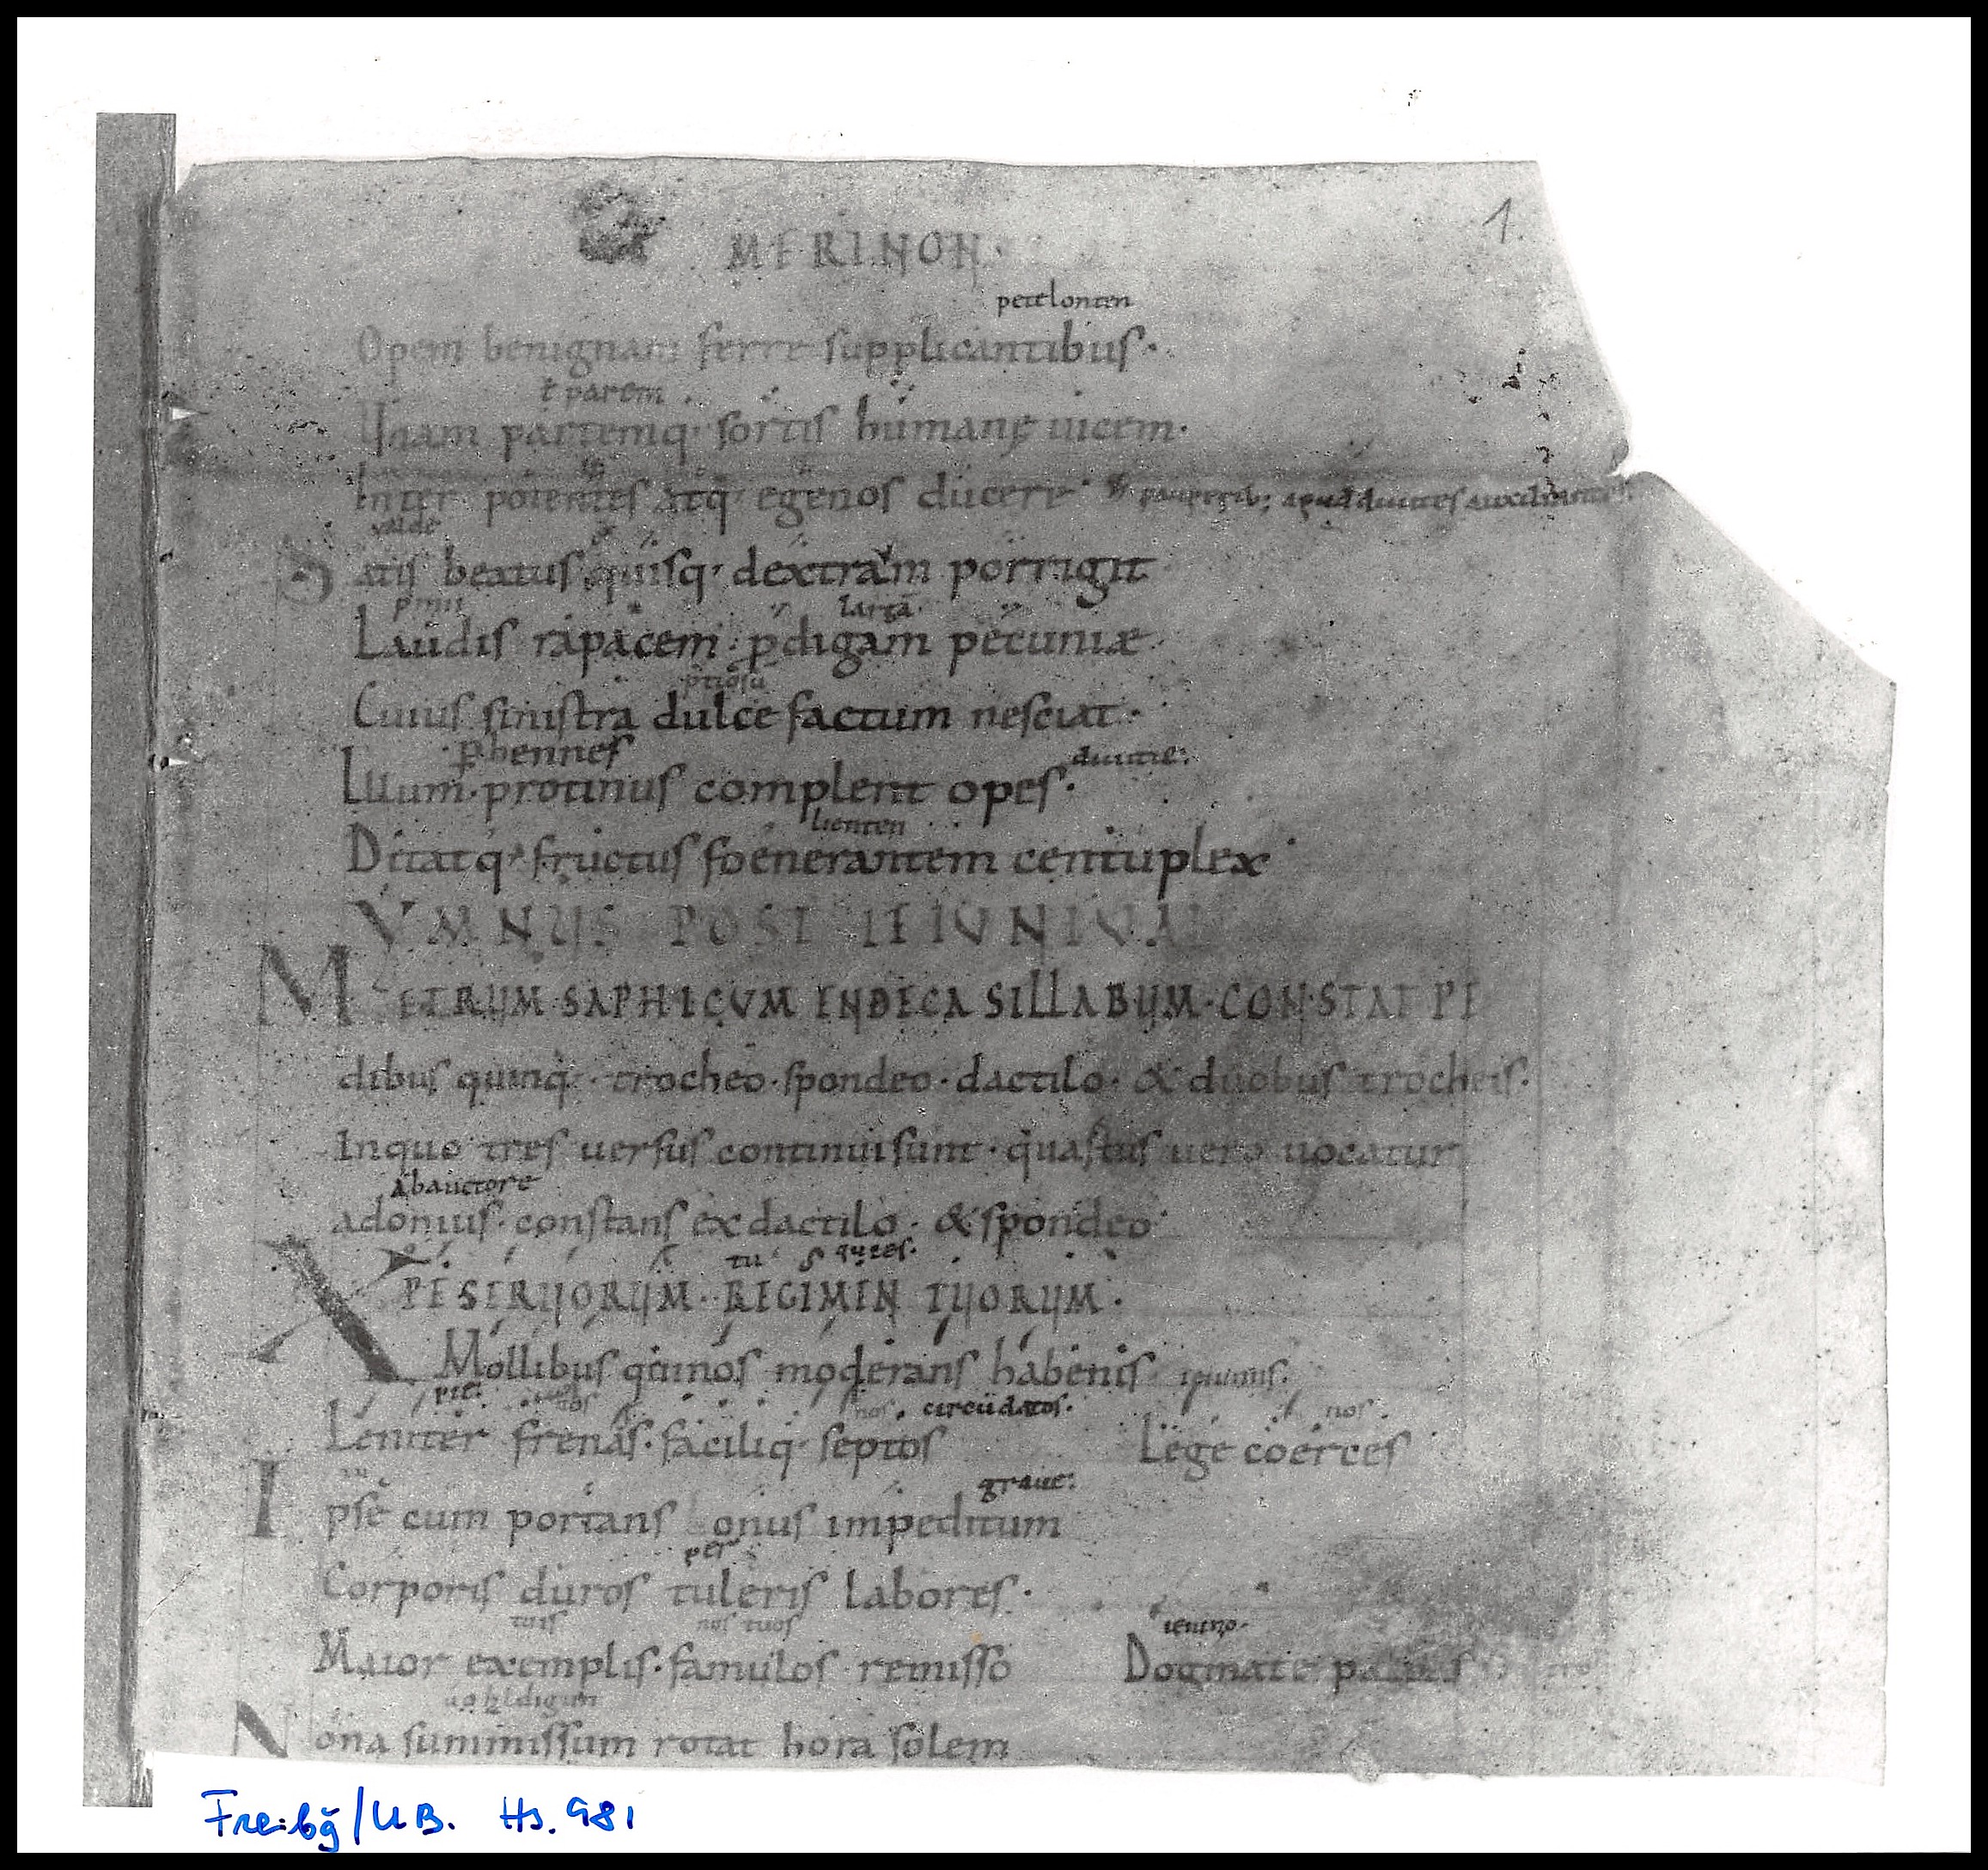 1.
MERINON·
petelonten
Opem benignam ferre supplicantibus·
ł parem
Unam partemq· sortis humanę uicem·
Inter potentes atq· egenos ducere·
ualde
Satis beatus quisq· dextram porrigit
largā·
Laudis rapacem· ꝓdigam pecuniæ
p̄tiosū
Cuius sinistra dulce factum nesciat·
ꝑhennes diuitie:
Illum·protinus complent opes·
lienten
Ditatq· fructus foenerantem centuplex
YMNUS POST IEIUNIUM
METRUM·SAPHICVM INDECA SILLABUM·CON·STAT PE
dibus quinq·· trocheo·spondeo·dactilo· & duobus trocheis·
Inquo tres uersus continui sunt· quartus uero uocatur
abauctore
adonius·constans ex dactilo· & spondeo·
tu qui es·
XPE SERUORUM· REGIMEN TUORUM·
Mollibus qui nos moderans habenis·
pie: nos circūdatos· nos
Leniter frenas·faciliq· septos Lege coerces
tu graue:
Ipse cum portans onus impeditum
per
Corporis duros tuleris labores·
tuis nos tuos ieiuno·
Maior exemplis·famulos remisso Dogmate palpas
Nona summissum rotat hora solem
Freibg/UB. Hs. 981